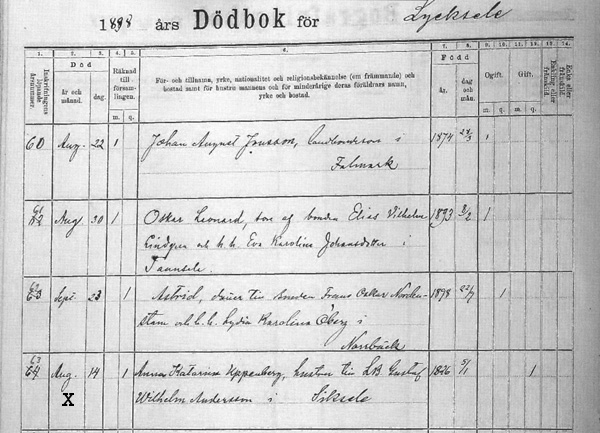 1898 års Dödbok för Lycksele
1. 2. 3. 4. 5. 6. 7. 8. 9. 10. 11. 12. 13. 14.
Inskrifningens löpande årsnummer. Död Räknad till församlingen. För- och tillnamn, yrke, nationalitet och religionsbekännelse (om främmande) och Född Ogift. Gift. Enkling eller frånskild Enka eller frånskild
år och månad. dag. bostad samt för hustru mannens och för minderårige deras föräldrars namn, år. dag och mån.
yrke och bostad.
m. q. m. q. m. q.
60 Aug. 22 1 Johan August Jonsson, landbonderson i 1874 24/3 1
Falmark
61 62 Aug 30 1 Oskar Leonard, son af bonden Elias Vilhelm 1893 8/2 1
Lindgren och h. h. Eva Karolina Johansdotter i
Tannsele.
62 63 Sept 23 1 Astrid, dotter till smeden Frans Oskar Norden- 1898 22/7 1
stam och h. h. Lydia Karolina Öberg i
Norrbäck
63 64 Aug. 14 1 Anna Katarina Uppenberg, hustru till Gustaf 1826 5/1 1
X Wilhelm Andersson i Siksele